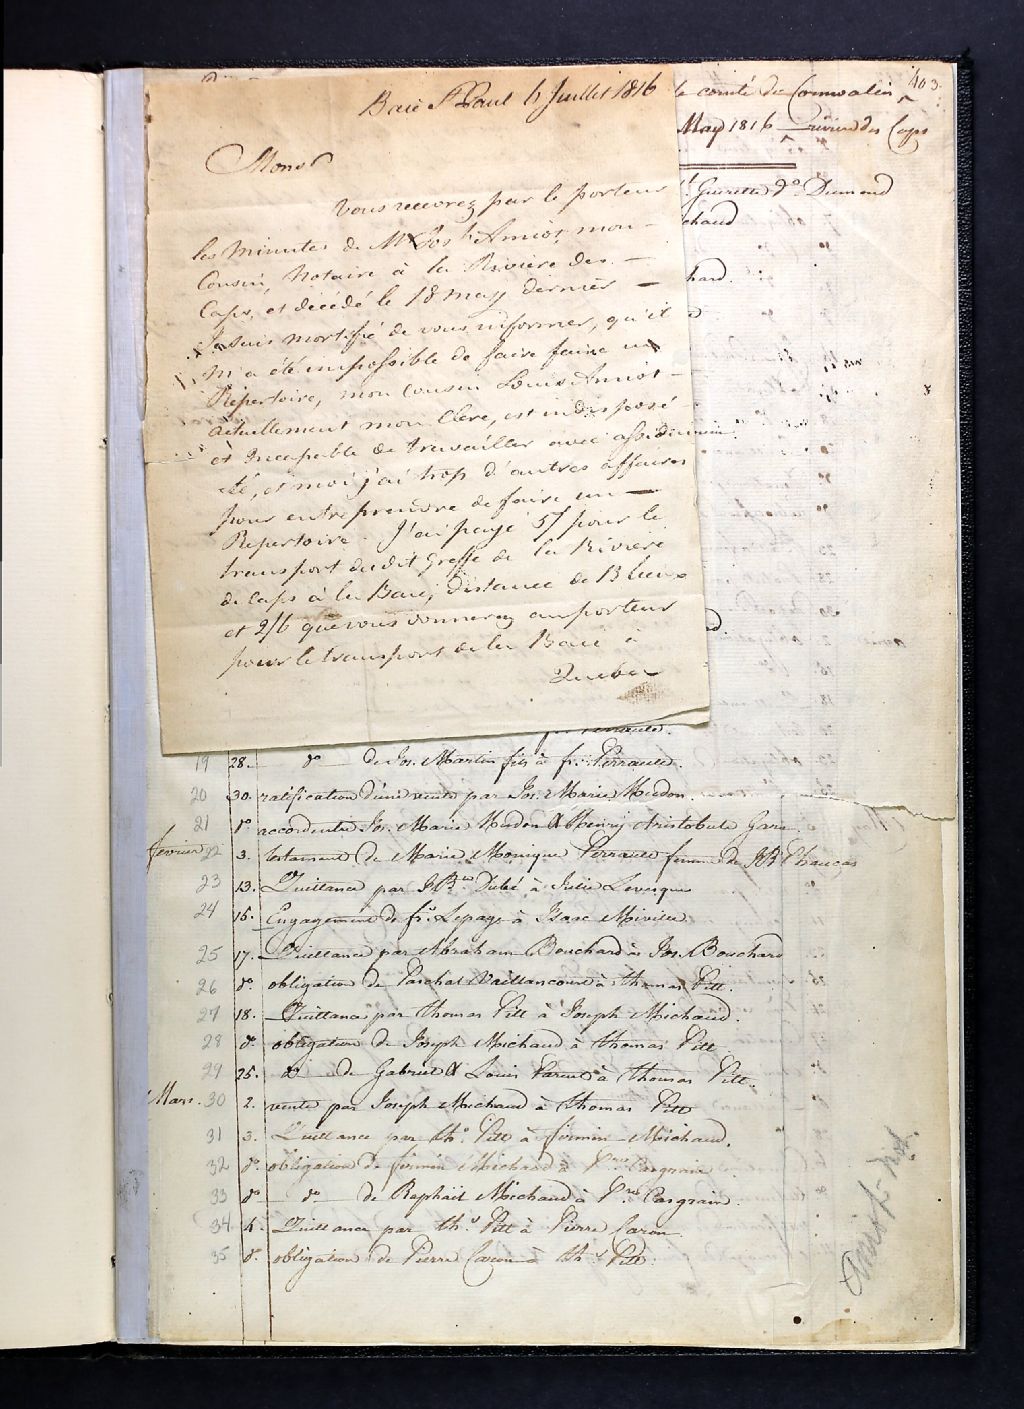 403
Baie St Paul 6 Juillet 1816
le comté de Cornwalis
May 1816 rivière des Caps
Monsr
Vous recevrez par le porteur
les Minutes de Mr Josh Amiot, mon
Cousin, Notaire à la Rivière des
Caps, et décédé le 18 may dernier
Je suis mortifié de vous informer, qu'il
m'a été impossible de faire faire un
Répertoire, mon cousin Louis Amiot
actuellement mon Clerc, est indisposé
et Incapable de travailler avec assidui
té, et moi j'ai trop d'autres affaires
pour entreprendre de faire un
Repertoire. J'ai payé 5/ pour le
transport du dit Greffe de la Rivière
de Caps à la Baie, distance de 13 lieux
et 2/6 que vous donnerez au porteur
pour le transport de la Baie à
Quebec
Guerette do Dumond
chaud
hard.
19 28. do de Jos. Martin fils à fr: Perrault.
20 30. ratification d'une vente par Jos. Marie Miodon.
21 1o accord entre Jos. Marie Miodon & Henry Aristobule Garon
fevrier 22 3. testament de Marie Monique Perrault femme de JB
23 13. Quittance par J Bte Dubé à Julie Levesque
24 15. Engagement de frs Lepage à Isaac Miville
25 17. Quittance par Abraham Bouchard à Jos. Bouchard
26 do obligation de Paschal Vaillancourt à thomas Pitt
27 18. Quittance par thomas Pitt à Joseph Michaud.
28 do obligation de Joseph Michaud à thomas Pitt
29 25. do de Gabriel & Louis Parent à thomas Pitt.
Mars. 30 2. vente par Joseph Michaud à thomas Pitt
31 3. Quittance par ths Pitt à firmin Michaud.
32 do obligation de firmin Michaud à Pre Casgrain
33 do do de Raphaël Michaud à Pre Casgrain.
34 4. Quittance par ths Pitt à Pierre Caron
35 do obligation de Pierre Caron à ths Pitt.
Amiot